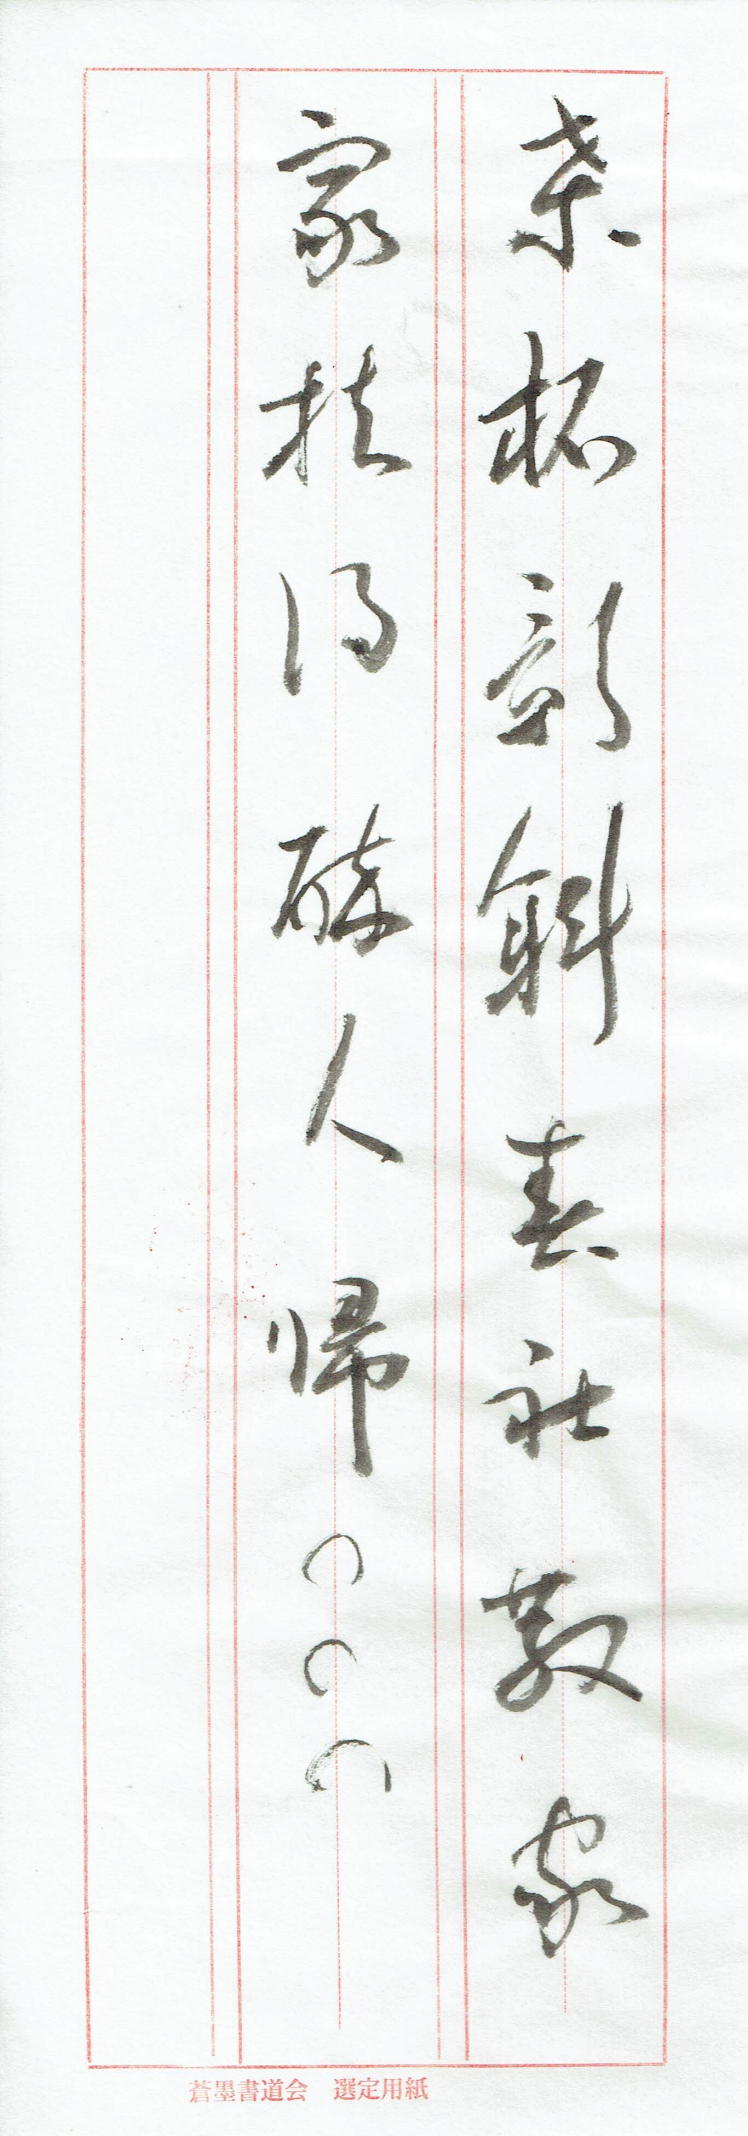 桑柘影斜春社散家
家扶得酔人帰
蒼墨書道会 選定用紙